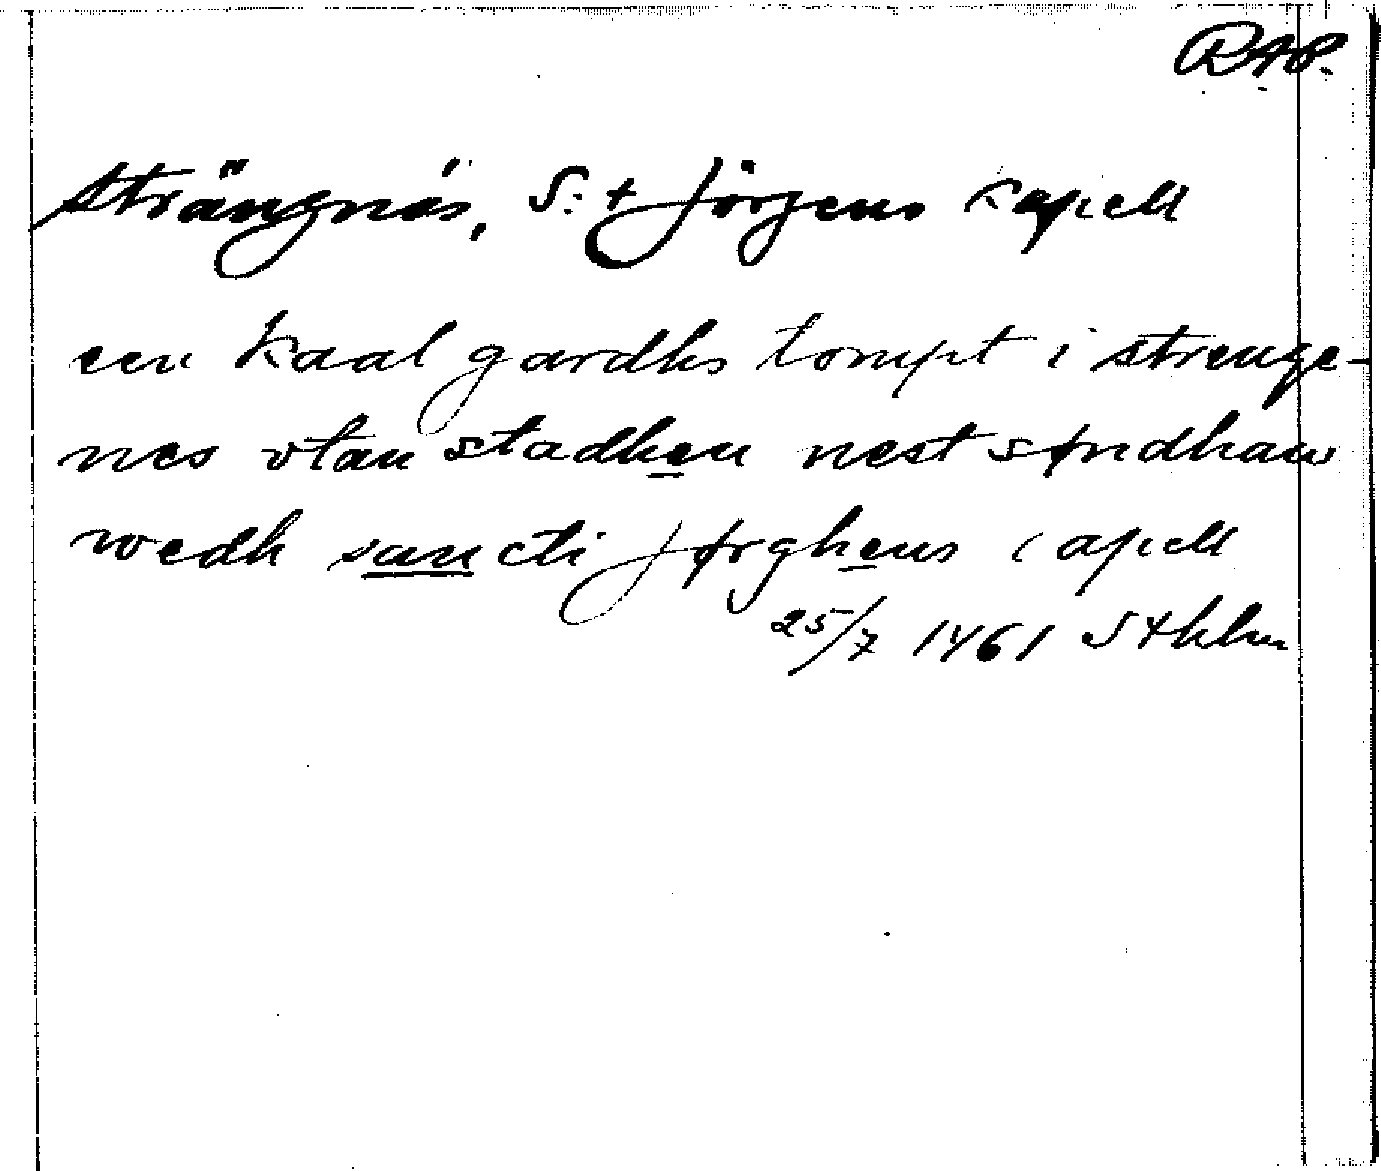 RAP.
Strängnäs, S:t Jörgens kapell
een kaal gardhs tompt i strenge-
nes vtan stadhen nest søndhan
wedh sancti Jørghens capell
25/7 1461 Sthlm